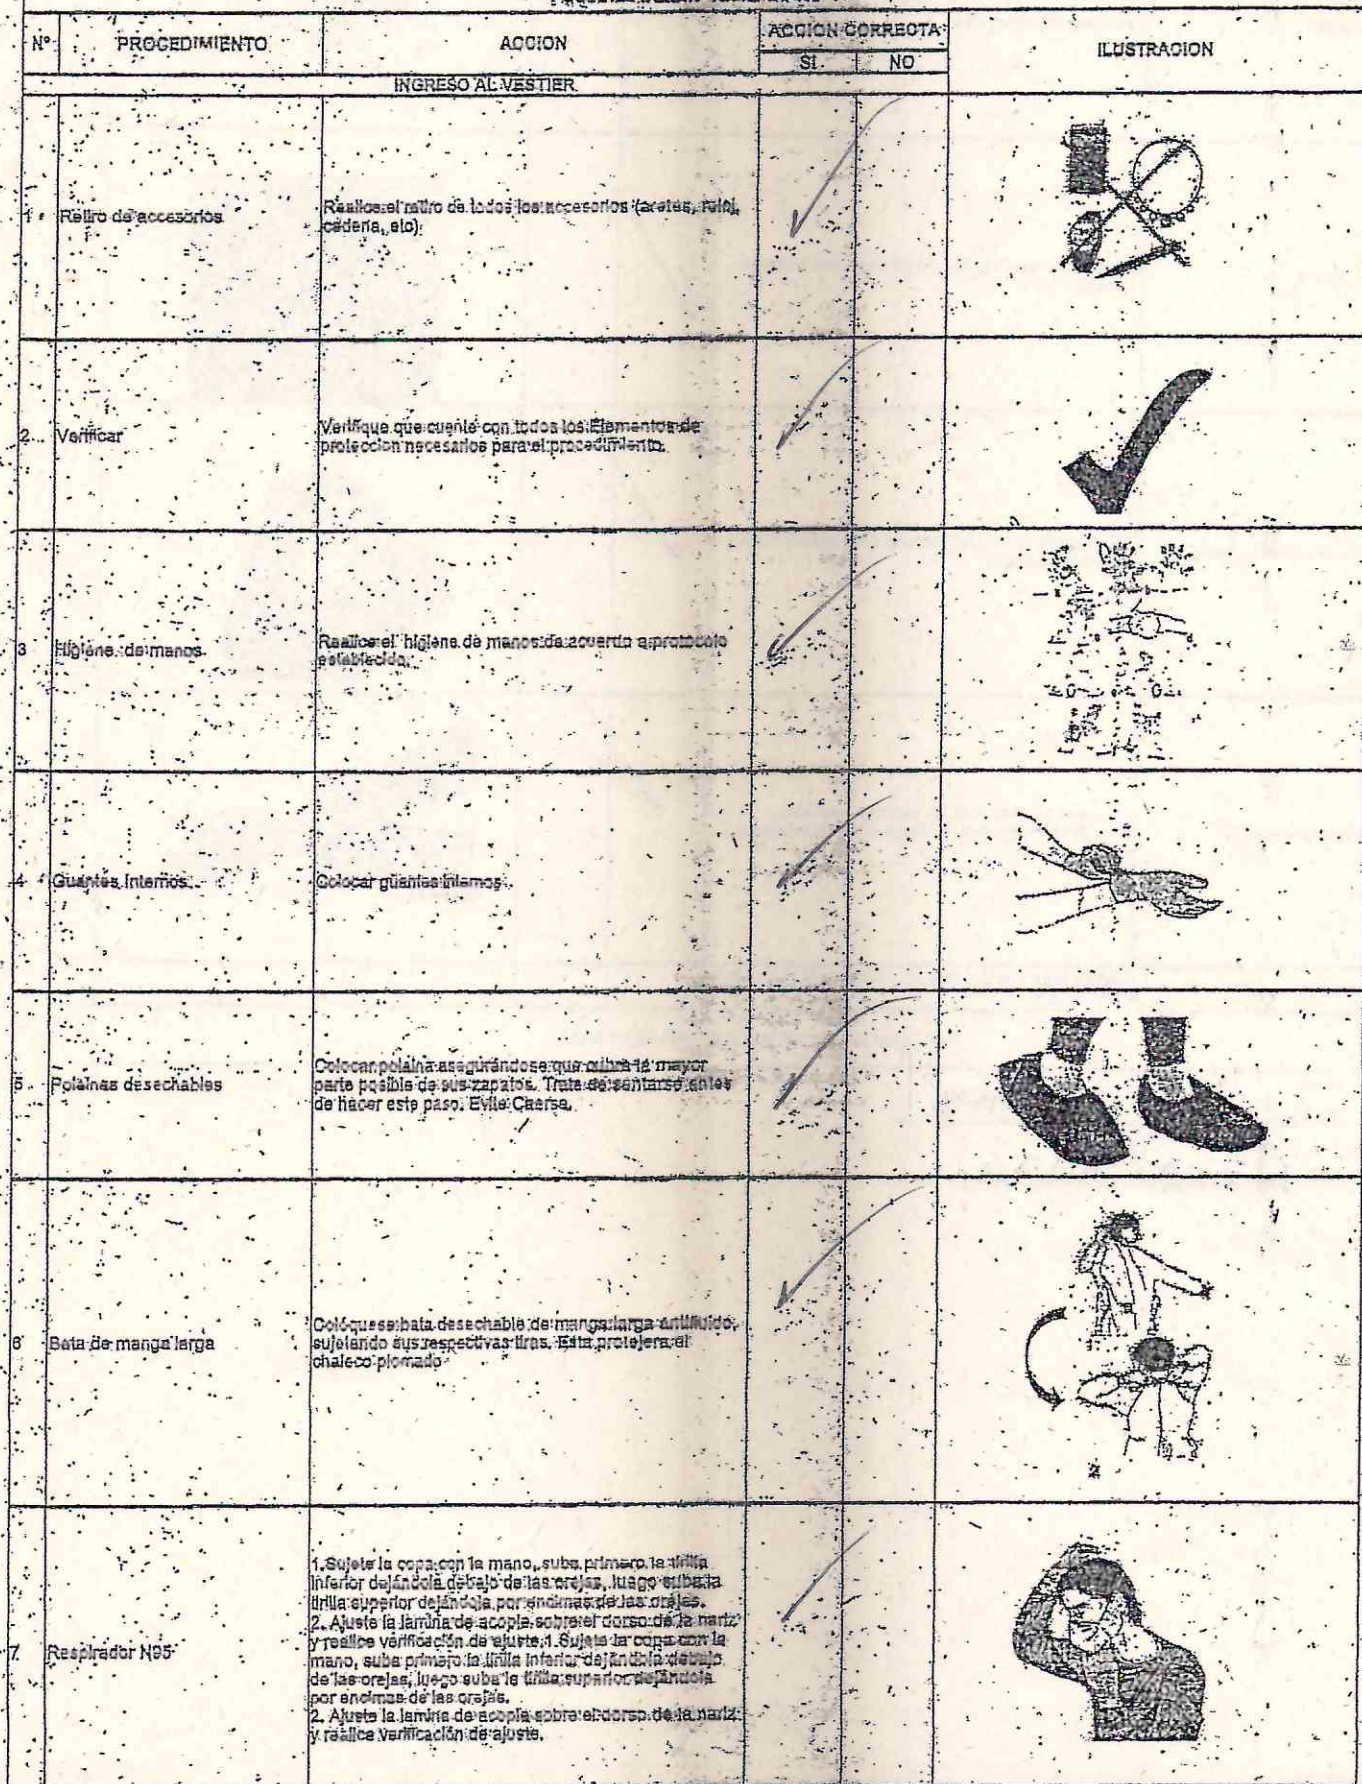 N° PROCEDIMIENTO ACCION ACCION CORRECTA ILUSTRACION
SI NO
INGRESO AL VESTIER
1 Retiro de accesorios Realice el retiro de todos los accesorios (aretes, reloj,
cadena, etc)
2 Verificar Verifique que cuente con todos los Elementos de
protección necesarios para el procedimiento.
3 Higiene de manos Realice el higiene de manos de acuerdo a protocolo
establecido.
4 Guantes Internos Colocar guantes internos
5 Polainas desechables Colocar polaina asegurándose que cubra la mayor
parte posible de sus zapatos. Trate de sentarse antes
de hacer este paso. Evite Caerse.
6 Bata de manga larga Colóquese bata desechable de manga larga antifluido,
sujetando sus respectivas tiras. Esta protejera el
chaleco plomado
2
7 Respirador N95 1.Sujete la copa con la mano, suba primero la tirilla
inferior dejándola debajo de las orejas, luego suba la
tirilla superior dejándola por encimas de las orejas.
2. Ajuste la lamina de acople sobre el dorso de la nariz
y realice verificación de ajuste.1.Sujete la copa con la
mano, suba primero la tirilla inferior dejándola debajo
de las orejas, luego suba la tirilla superior dejándola
por encimas de las orejas.
2. Ajuste la lamina de acople sobre el dorso de la nariz
y realice verificación de ajuste.